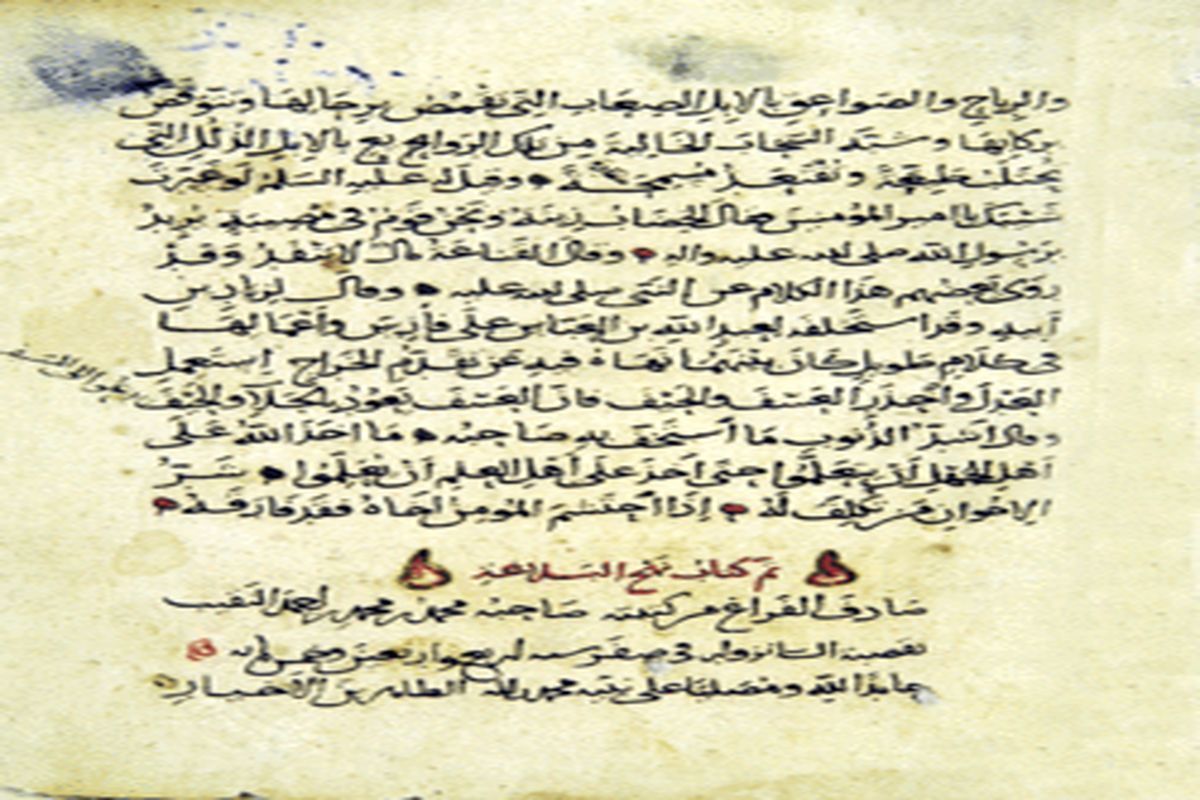 والرياح والصواعق بالابل الصعاب التى تقمص برحالها وتتوقص
بركابها وشبه السحاب الخالية من تلك الروايع بالابل الذلل التى
تحتلب طيعة وتقتعد مسمحة وقيل له عليه السلم لو غيرت
شيبك يا امير المؤمنين فقال الخضاب زينة ونحن قوم فى مصيبة يريد
برسول الله صلى الله عليه واله وقال القناعة مال لا ينفد وقد
روى بعضهم هذا الكلام عن النبى صلى الله عليه وقال لزياد بن
ابيه وقد استخلفه لعبد الله بن العباس على فارس واعمالها
فى كلام طويل كان بينهما نهاه فيه عن تقدم الخراج استعمل
العدل واحذر العسف والحيف فان العسف يعود بالجلاء والحيف
يدعو الى السيف
وقال اشد الذنوب ما استخف به صاحبه ما اخذ الله على
اهل الجهل ان يتعلموا حتى اخذ على اهل العلم ان يعلموا شر
الاخوان من تكلف له اذا احتشم المؤمن اخاه فقد فارقه
تم كتاب نهج البلاغة
صادف الفراغ من كتبته صاحبه محمد بن محمد بن احمد النقيب
بقصبة السانزوار فى صفر سنه اربع واربعين وخمس مايه
حامدا لله ومصليا على نبيه محمد واله الطاهرين الاخيار